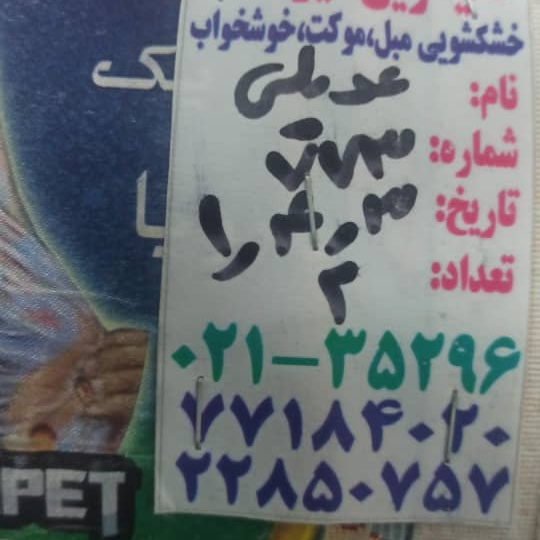 خشکشویی مبل،موکت،خوشخواب
نام: عدیلی
شماره: ۷۷۳
تاریخ:
تعداد: ۲
۰۲۱-۳۵۲۹۶
۷۷۱۸۴۰۲۰
۲۲۸۵۰۷۵۷
PET